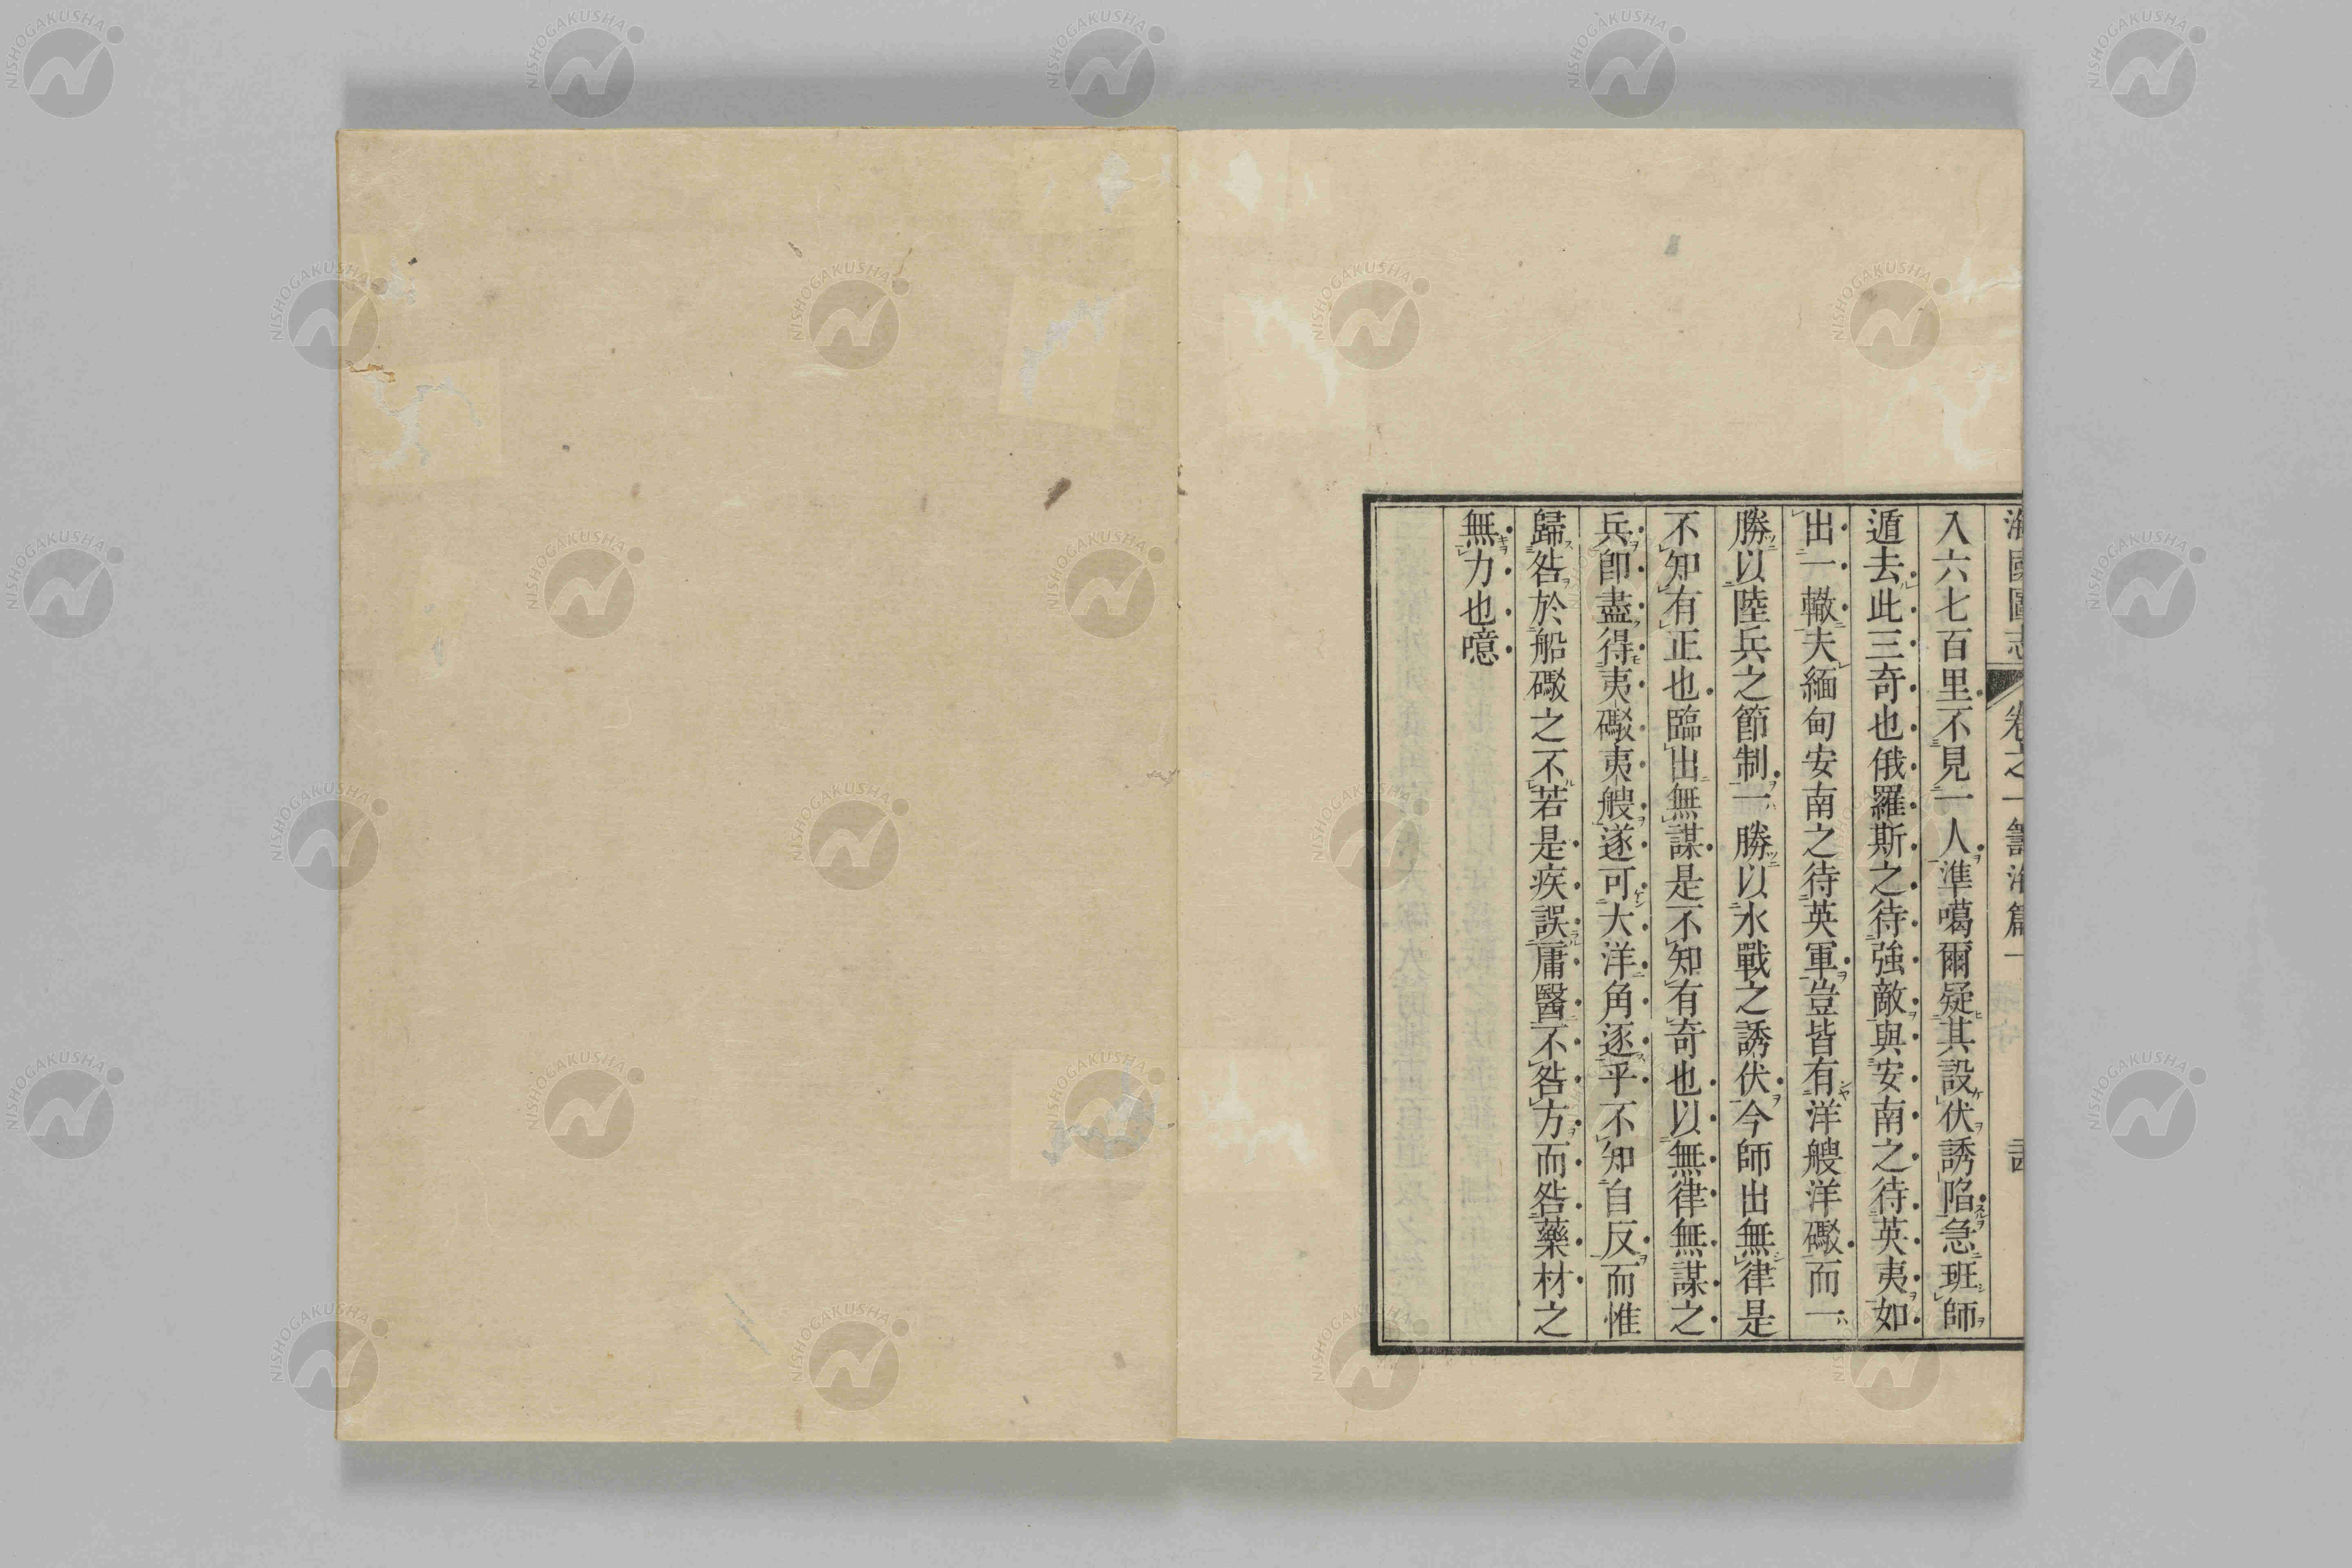 海國圖志 卷之一 籌海篇一
入六七百里不見一人準噶爾疑其設伏誘陷急班師
遁去此三奇也俄羅斯之待強敵與安南之待英夷如
出一轍夫緬甸安南之待英軍豈皆有洋艘洋礮而一
勝以陸兵之節制一勝以水戰之誘伏今師出無律是
不知有正也臨出無謀是不知有奇也以無律無謀之
兵卽盡得夷礮夷艘遂可大洋角逐乎不知自反而惟
歸咎於船礮之不若是疾誤庸醫不咎方而咎藥材之
無力也噫
NISHOGAKUSHA